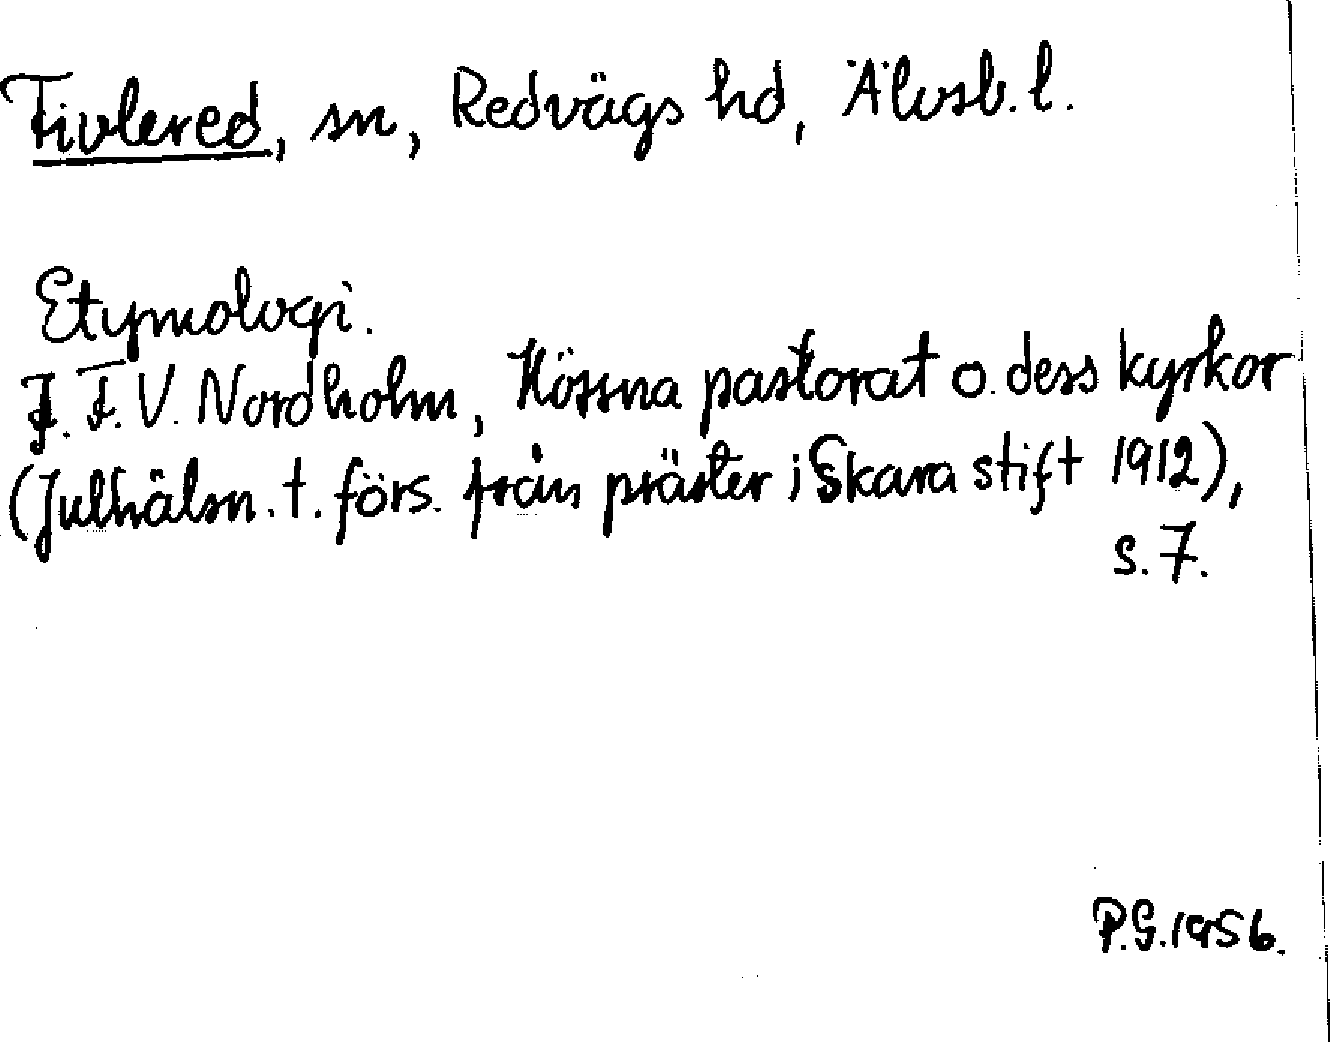 Tivlered, sn, Redvägs hd, Älvsb. l.
Etymologi.
J. F. V. Nordholm, Hössna pastorat o. dess kyrkor
(Julhälsn. t. förs. från präster i Skara stift 1912),
s. 7.
P.G. 1956.